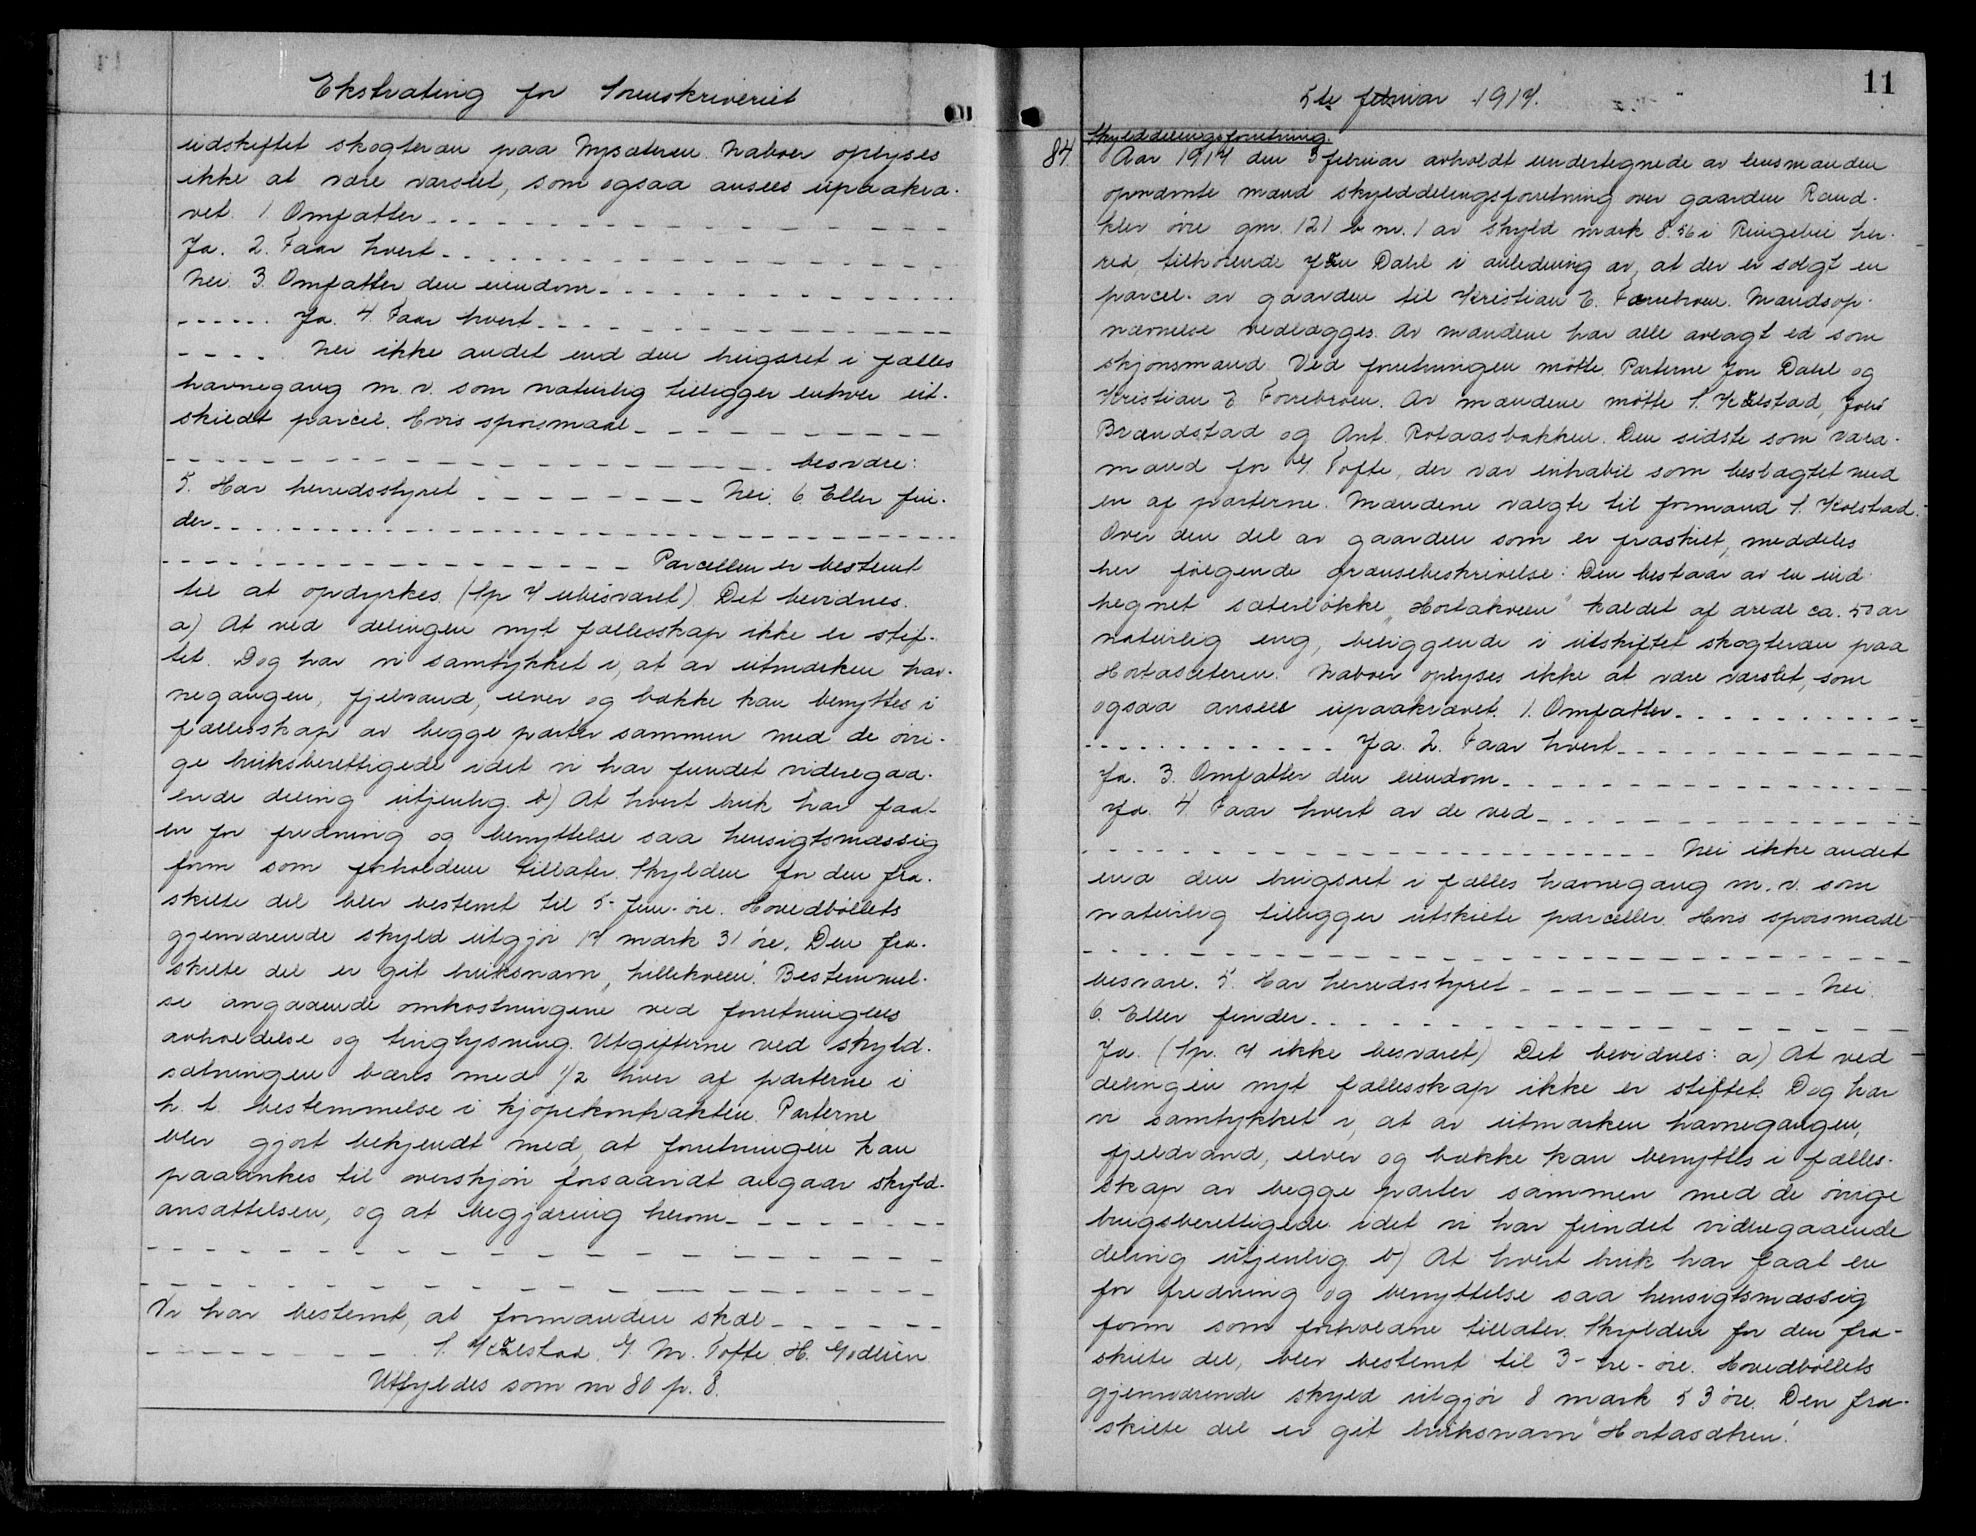 Ekstrating for Sorenskriveriet
udskiftet skogteran paa Nysæteren. Naboer oplyses
ikke at være varslet, som ogsaa ansees upaakra-
vet. 1. Omfatter
Ja. 2. Faar hvert
Nei 3. Omfatter den eiendom
Ja. 4. Faar hvert
Nei ikke andet end den brugsret i fælles
havnegang m. v. som naturlig tilligger enhver ut-
skildt parcel. Hvis spørsmaal
besvare:
5. Har herredsstyret Nei. 6. Eller fin-
der
Parcellen er bestemt
til at opdyrkes. (Sp 7 ubesvaret). Det bevidnes.
a) At ved delingen nyt fællesskap ikke er stif-
tet. Dog har vi samtykket i, at av utmarken hav-
negangen, fjelvand, elver og bække kan benyttes i
fællesskap av begge parter sammen med de øvri-
ge bruksberettigede idet vi har fundet videregaa-
ende deling utjenlig. b) At hvert bruk har faat
en for fredning og benyttelse saa hensigtsmæssig
form som forholdene tillater. Skylden for den fra-
skilte del blev bestemt til 5- fem- øre. Hovedbøllets
gjenværende skyld utgjør 17 mark 31 øre. Den fra-
skilte del er git bruksnavn „Lillekveen". Bestemmel-
se angaaende omkostningene ved forretningens
avholdelse og tinglysning. Utgifterne ved skyld-
sætningen bæres med 1/2 hver af parterne i
h. t. bestemmelse i kjøpekontrakten. Parterne
blev gjort bekjendt med, at forretningen kan
paaankes til overskjøn forsaavidt angaar skyld-
ansættelsen, og at begjæring herom
Vi har bestemt, at formanden skal
S. Kolstad. G. M. Tofte. H. Godlien
Utfyldes som nr 80 p. 8.
11
5te februar 1917.
84.
Skylddelingsforretning.
Aar 1917 den 3 februar avholdt undertegnede av lensmanden
opnævnte mænd skylddelingsforretning over gaarden Rand-
klev øvre gnr. 121 b. nr. 1 av skyld mark 8.56 i Ringebu her-
red, tilhørende Jon Dahl i anledning av, at der er solgt en
parcel av gaarden til Kristian E. Forrebroen. Mandsop-
nævnelse vedlægges. Av mændene har alle avlagt ed som
skjønsmænd. Ved forretningen møtte. Parterne Jon Dahl og
Kristian E Forrebroen. Av mændene møtte S. Kolstad, Johs
Brændstad og Ant. Rotaasbakken. Den sidste som vara-
mand for G. Tofte, der var inhabil som beslægtet med
en af parterne. Mændene valgte til formand S. Kolstad.
Over den del av gaarden som er fraskilt, meddeles
her følgende grænsebeskrivelse: Den bestaar av en ind-
hegnet sæterløkke „Hortakveen" kaldet af areal ca. 50 ar
naturlig eng, beliggende i utskiftet skogteran paa
Hortasæteren. Naboer oplyses ikke at være varslet, som
ogsaa ansees upaakrævet. 1. Omfatter
Ja. 2. Faar hvert
Ja. 3. Omfatter den eiendom
Ja. 4. Faar hvert av de ved
Nei ikke andet
end den brugsret i fælles havnegang m. v. som
naturlig tilligger utskilte parceller. Hvis spørsmaal
besvare. 5. Har herredsstyret Nei.
6. Eller finder
Ja. (Sp. 7 ikke besvaret) Det bevidnes: a) At ved
delingen nyt fællesskap ikke er stiftet. Dog har
vi samtykket i, at av utmarken havnegangen,
fjeldvand, elver og bække kan benyttes i fælles-
skap av begge parter sammen med de øvrige
brugsberettigede idet vi har fundet videregaaende
deling utjenlig. b) At hvert bruk har faat en
for fredning og benyttelse saa hensigtsmæssig
form som forholdene tillater. Skylden for den fra-
skilte del, blev bestemt til 3- tre- øre. Hovedbøllets
gjenværende skyld utgjør 8 mark 53 øre. Den fra-
skilte del er git bruksnavn "Hortasætren".